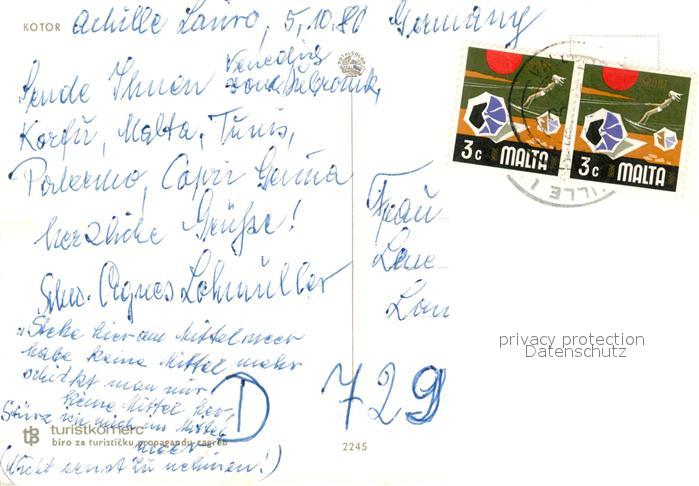 KOTOR
Achille Lauro, 5.10.80 Germany
Sende Ihnen Venedig
Dubrovnik,
Korfu, Malta, Tunis,
Palermo, Capri Genua
herzliche Grüße!
Agnes Lohmüller
"Stehe hier am Mittelmeer
habe keine Mittel mehr
schickt man mir
keine Mittel her,
Stürz ich mich ins Mittel
meer"
(Nicht ernst zu nehmen!)
turistkomerc
biro za turističku propagandu zagreb
2245
3c MALTA
3c MALTA
Frau
Lene
D 729
privacy protection
Datenschutz